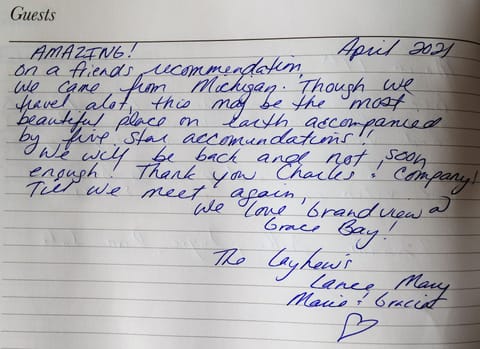 Guests
AMAZING! April 2021
on a friends recommendation,
we came from Michigan. Though we
travel alot, this may be the most
beautiful place on earth accompanied
by five star accomundations!!
We will be back and not soon
enough! Thank you Charles & Company!
Till we meet again,
We love Grandview @
Grace Bay!
The Layhew's
Lance, Mary
Marie &
♡